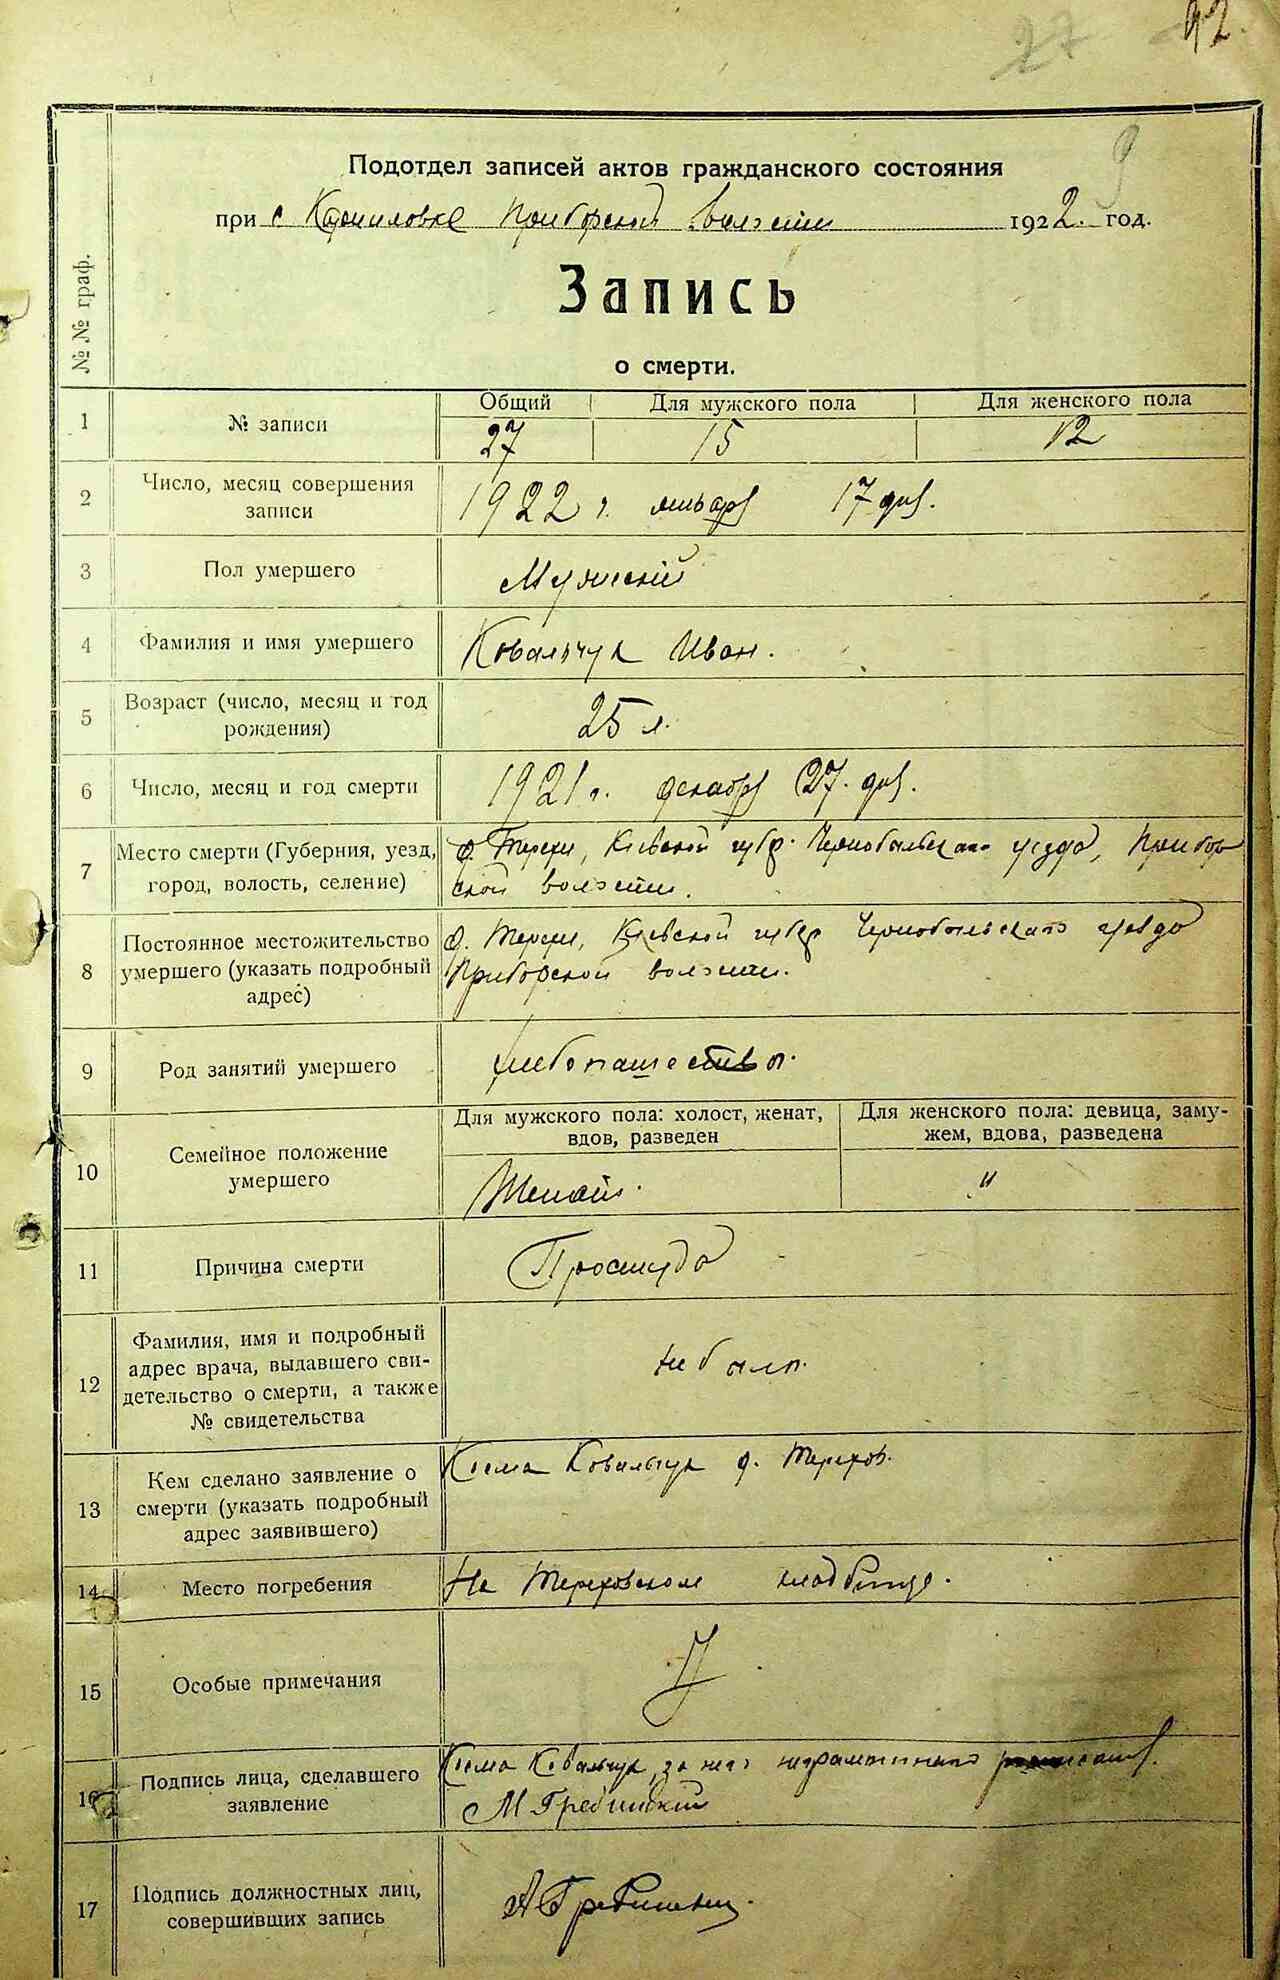 27 92.
9
Подотдел записей актов гражданского состояния
при с Карпиловке Приборской волости 1922 год.
№№ граф.
Запись
о смерти.
1 № записи Общий Для мужского пола Для женского пола
27 15 12
2 Число, месяц совершения записи
1922 г. январ 17 дня.
3 Пол умершего
Мужский
4 Фамилия и имя умершего
Ковальчук Иван.
5 Возраст (число, месяц и год рождения)
25 л.
6 Число, месяц и год смерти
1921 г. декабр 27. дня.
7 Место смерти (Губерния, уезд, город, волость, селение)
д. Терехи, Киевской губер. Чернобыльскаго уезда, Прибор
ской волости.
8 Постоянное местожительство умершего (указать подробный адрес)
д. Терехи, Киевской губер Чернобыльскаго уезда
Приборской волости.
9 Род занятий умершего
хлебопашество.
10 Семейное положение умершего
Для мужского пола: холост, женат, вдов, разведен
Для женского пола: девица, замужем, вдова, разведена
Женат. "
11 Причина смерти
Простуда
12 Фамилия, имя и подробный адрес врача, выдавшего свидетельство о смерти, а также № свидетельства
не было.
13 Кем сделано заявление о смерти (указать подробный адрес заявившего)
Косма Ковальчук д. Терехов.
14 Место погребения
На Тереховском кладбище.
15 Особые примечания
16 Подпись лица, сделавшего заявление
Косма Ковальчук, за него неграмотнаго
М Гребинский
17 Подпись должностных лиц, совершивших запись